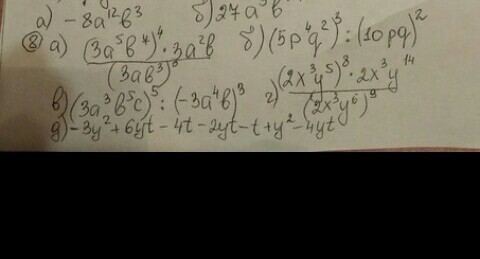 а) -8a¹²b³ б) 27a⁵b
⑧ а) (3a⁵b⁴)⁴ · 3a²b / (3ab³)⁵ б) (5p⁴q²)³ : (10pq)²
в) (3a³b⁵c)⁵ : (-3a⁴b)³ г) (2x³y⁵)⁸ · 2x³y¹⁴ / (2x³y⁶)⁹
д) -3y² + 6yt - 4t - 2yt - t + y² - 4yt